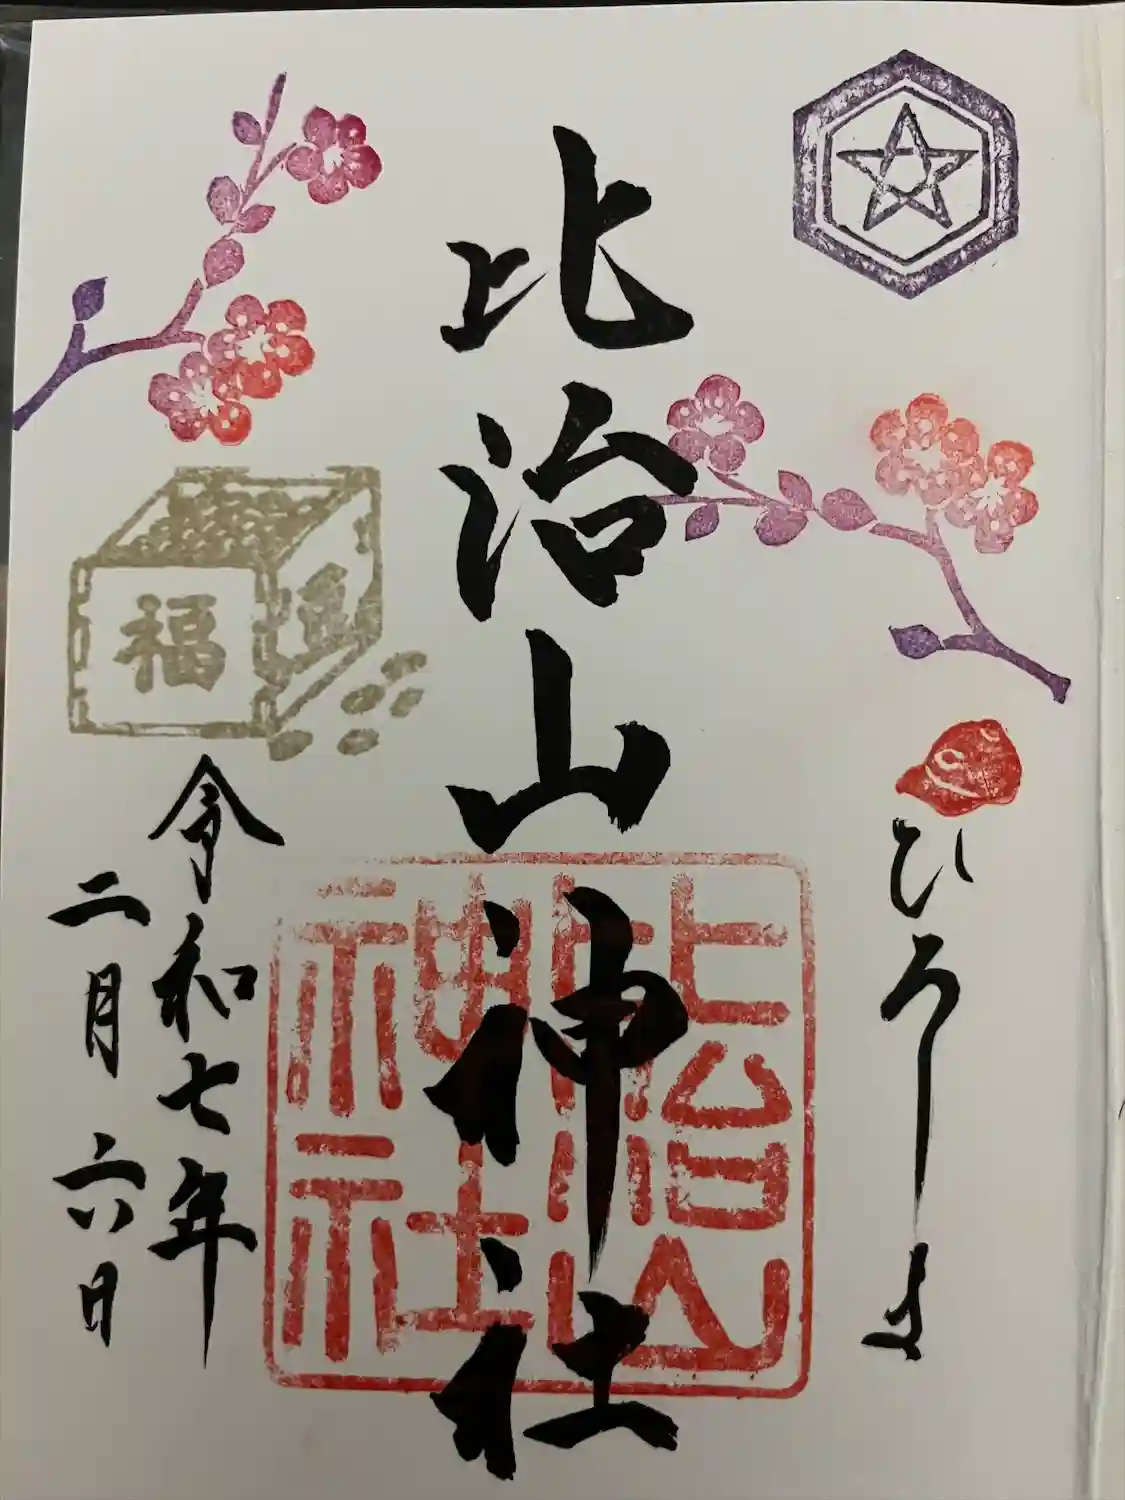 ひろしま
比治山神社
比治山神社
福
令和七年
二月六日